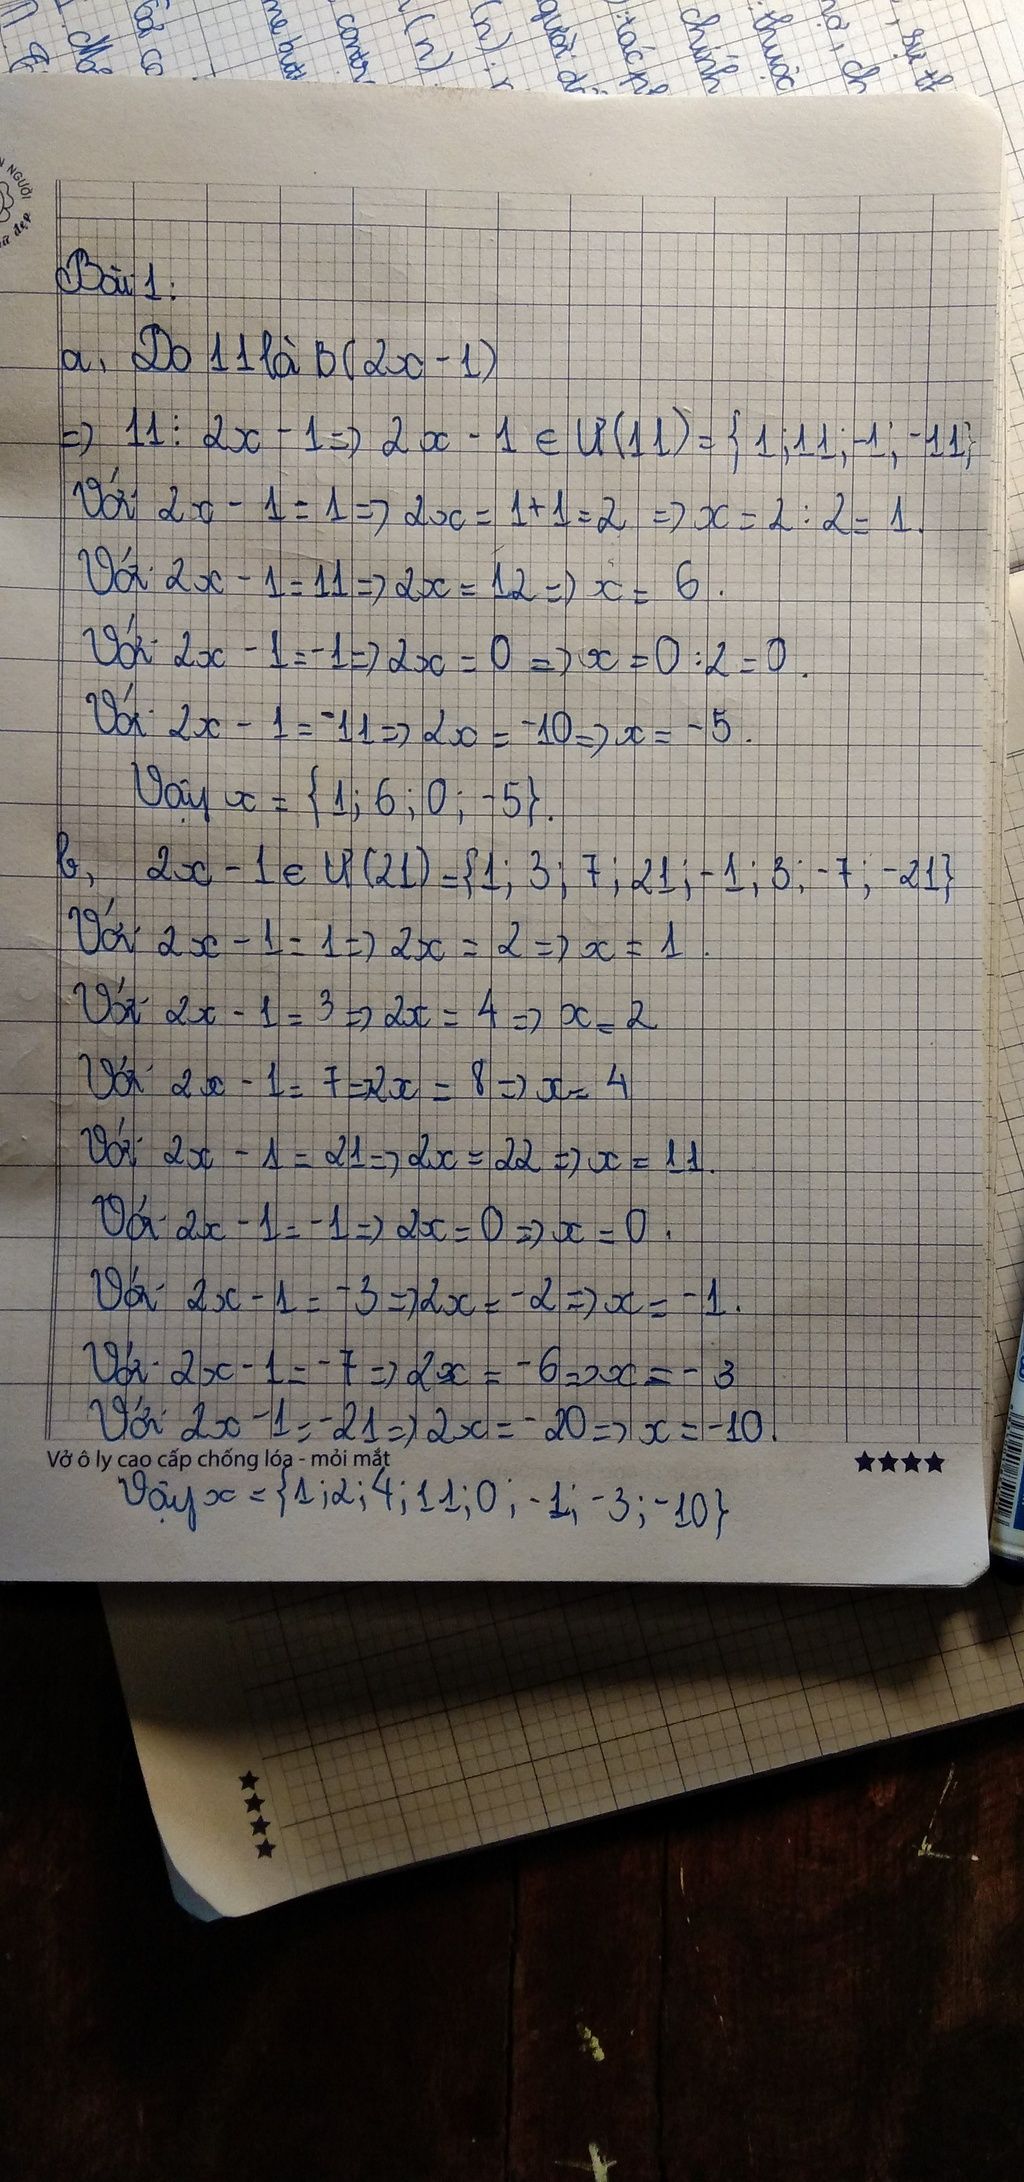 Bài 1:
a, Do 11 là B(2x - 1)
=> 11 ⋮ 2x - 1 => 2x - 1 ∈ Ư(11) = {1; 11; -1; -11}
Với 2x - 1 = 1 => 2x = 1+1 = 2 => x = 2 : 2 = 1.
Với 2x - 1 = 11 => 2x = 12 => x = 6.
Với 2x - 1 = -1 => 2x = 0 => x = 0 : 2 = 0.
Với 2x - 1 = -11 => 2x = -10 => x = -5.
Vậy x = {1; 6; 0; -5}.
b, 2x - 1 ∈ Ư(21) = {1; 3; 7; 21; -1; 3; -7; -21}
Với 2x - 1 = 1 => 2x = 2 => x = 1.
Với 2x - 1 = 3 => 2x = 4 => x = 2
Với 2x - 1 = 7 => 2x = 8 => x = 4
Với 2x - 1 = 21 => 2x = 22 => x = 11.
Với 2x - 1 = -1 => 2x = 0 => x = 0.
Với 2x - 1 = -3 => 2x = -2 => x = -1.
Với 2x - 1 = -7 => 2x = -6 => x = -3
Với 2x - 1 = -21 => 2x = -20 => x = -10.
Vở ô ly cao cấp chống lóa - mỏi mắt
Vậy x = {1; 2; 4; 11; 0; -1; -3; -10}